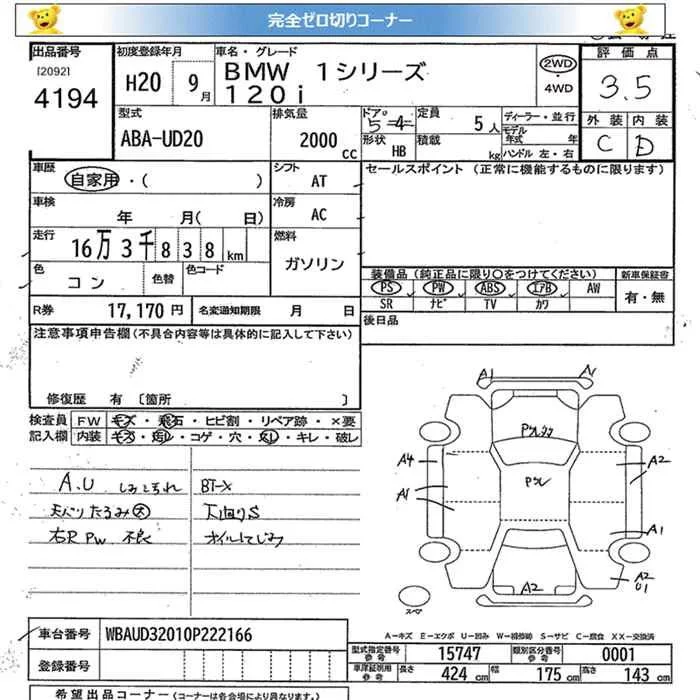 完全ゼロ切りコーナー
出品番号 初度登録年月 車名・グレード 評価点
[2092] 4194 H20 9月 BMW 1シリーズ 120i 2WD・4WD 3.5
外装 内装
C D
型式 排気量 ドア 定員 ディーラー・並行
ABA-UD20 2000CC 5=4 5人 モデル年式 年
形状 HB 積載 kg ハンドル 左・右
車歴 自家用・( ) シフト AT セールスポイント (正常に機能するものに限ります)
車検 年 月( 日) 冷房 AC
走行 16万3千838km 燃料 ガソリン
色 コン 色替 色コード
装備品(純正品に限り○をつけてください) 新車保証書
PS PW ABS エアB AW 有・無
SR ナビ TV カワ
R券 17,170円 名変通知期限 月 日 後日品
注意事項申告欄(不具合内容等は具体的に記入して下さい)
修復歴 有 〔箇所 〕
検査員 FW キズ・飛石・ヒビ割・リペア跡・×要
記入欄 内装 キズ・汚レ・コゲ・穴・スレ・キレ・破レ
A.U BT-X
天バリたるみ大 下回りS
右R PW 不良 オイルにじみ
A1
A4 A2
A1 A1
A2 A2
U1
スペア
A-キズ E-エクボ U-凹み W-補修跡 S-サビ C-腐食 XX-交換済
車台番号 WBAUD32010P222166
型式指定番号 参考 15747 類別区分番号 参考 0001
登録番号
車庫証明用 参考 長さ 424cm 幅 175cm 高さ 143cm
希望出品コーナー(コーナーは各会場により異なります。)